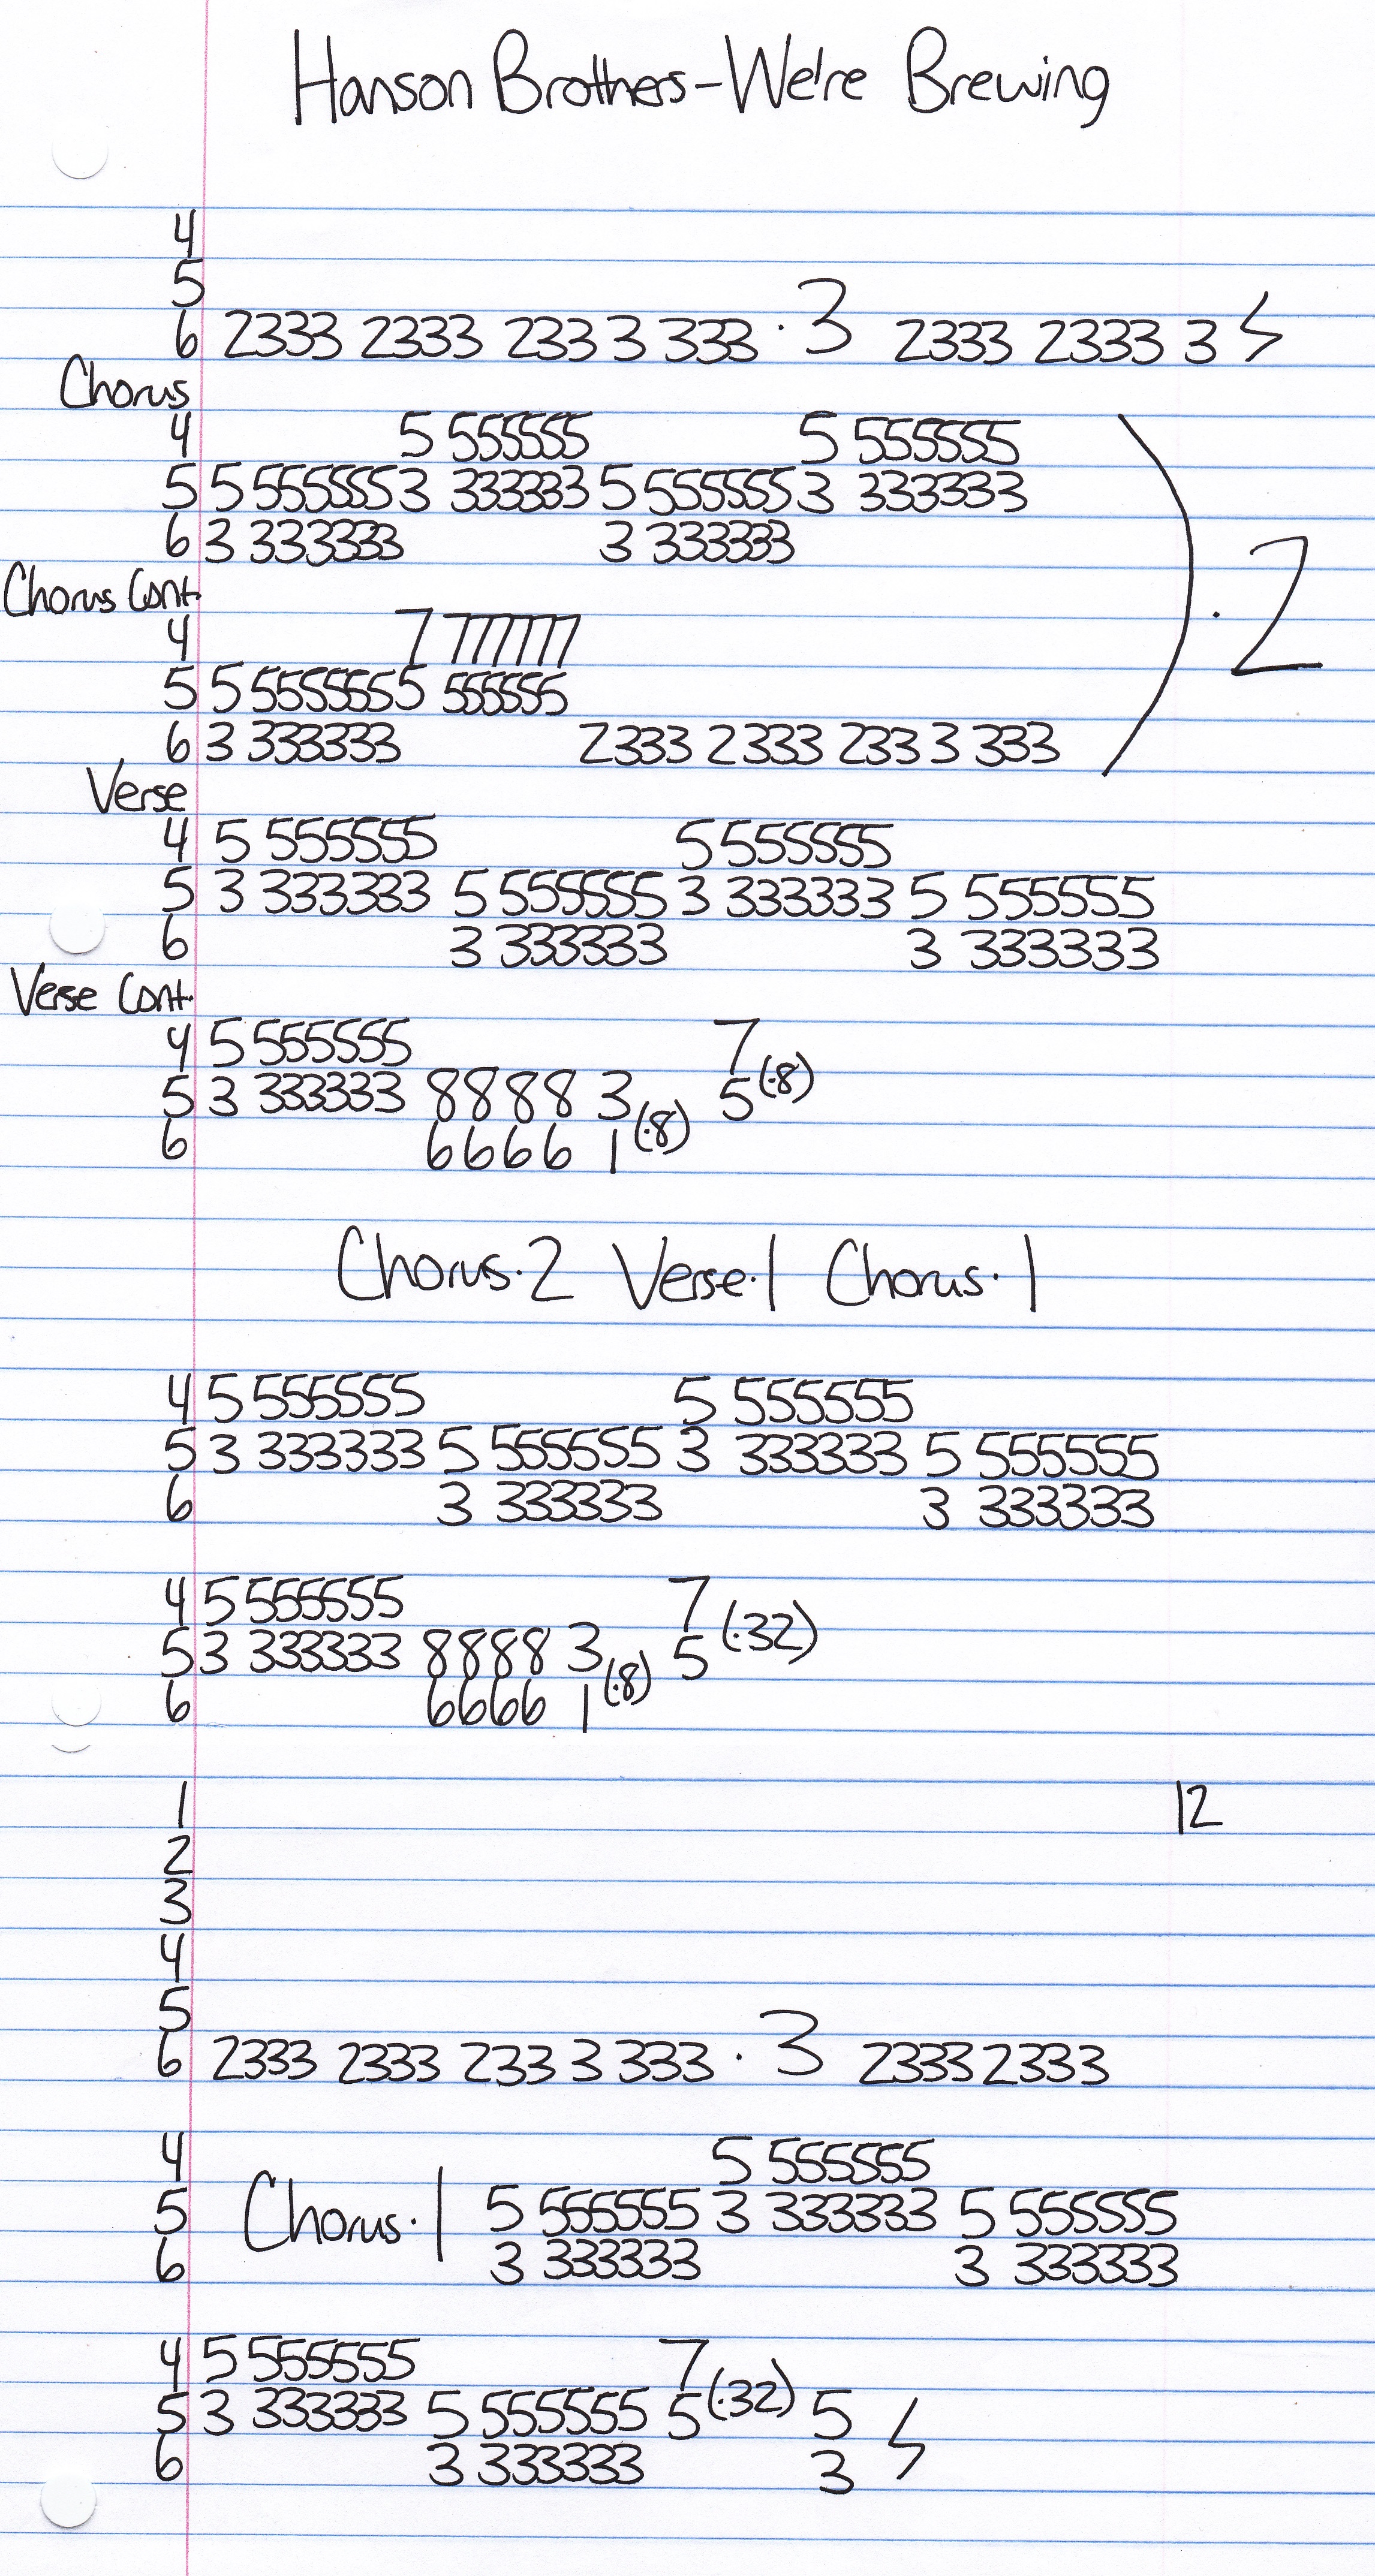 Hanson Brothers-We're Brewing
4
5
6 2333 2333 233 3 333 · 3 2333 2333 3
Chorus
4 5 555555 5 555555
5 5 555555 3 333333 5 555555 3 333333
6 3 333333 3 333333
Chorus Cont.
4 7 777777
5 5 555555 5 555555
6 3 333333 2333 2333 233 3 333
) · 2
Verse
4 5 555555 5 555555
5 3 333333 5 555555 3 333333 5 555555
6 3 333333 3 333333
Verse Cont.
4 5 555555 7
5 3 333333 8888 3 5 (·8)
6 6666 1 (·8)
Chorus·2 Verse·1 Chorus·1
4 5 555555 5 555555
5 3 333333 5 555555 3 333333 5 555555
6 3 333333 3 333333
4 5 555555 7
5 3 333333 8888 3 5 (·32)
6 6666 1 (·8)
1 12
2
3
4
5
6 2333 2333 233 3 333 · 3 2333 2333
4 5 555555
5 Chorus·1 5 555555 3 333333 5 555555
6 3 333333 3 333333
4 5 555555 7
5 3 333333 5 555555 5 (·32) 5
6 3 333333 3